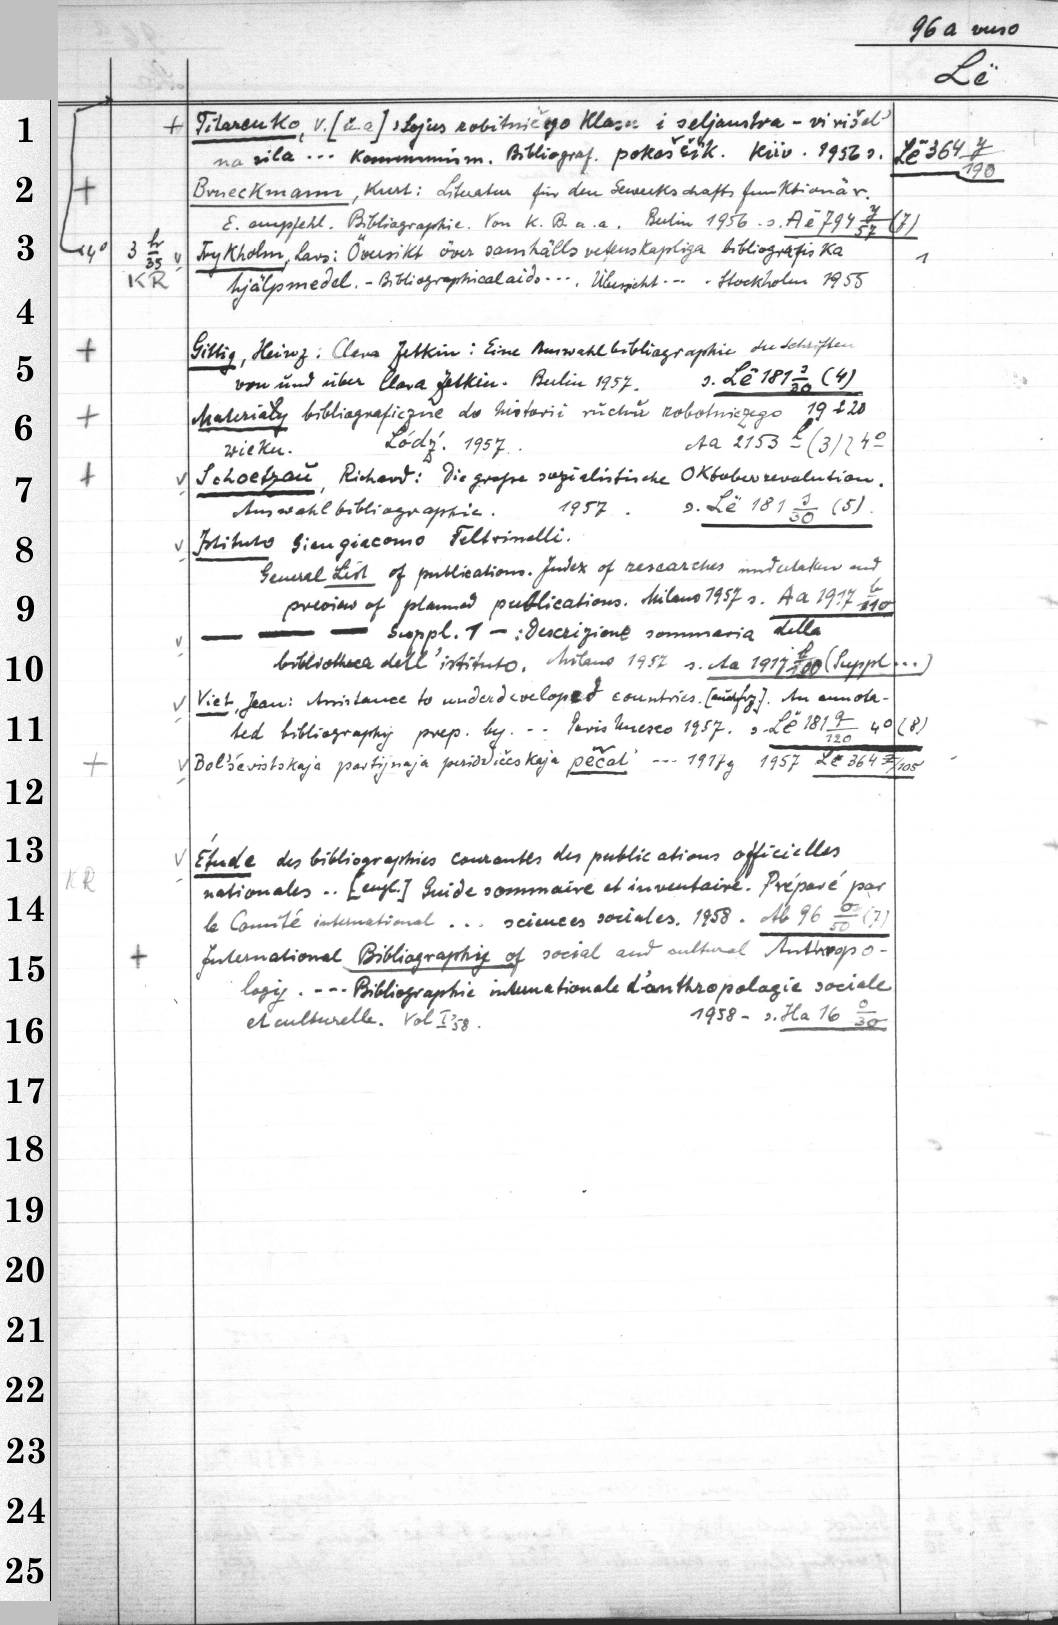 96 a verso
Lë
1
+ Titarenko, V. [u. a.] : Sojus robitničogo klasu i seljanstva - virišal'
na sila ... Kommunizm. Bibliograf. pokažčik. Kiïv. 1956 s. Lë 364 y/190
2
+ Brueckmann, Kurt: Literatur für den Gewerkschaftsfunktionär.
E. empfehl. Bibliographie. Von K. B. u. a. Berlin 1956. s. Aë 794 y/57 (7)
3
4° 3 br/35 v Frykholm, Lars: Översikt över samhällsvetenskapliga bibliografiska 1
KR hjälpmedel. - Bibliographical aids ... . Übersicht ... . Stockholm 1955
4
+ Gittig, Heinz: Clara Zetkin: Eine Auswahlbibliographie der Schriften
5
von und über Clara Zetkin. Berlin 1957. s. Lë 181 s/30 (4)
+ Materiały bibliograficzne do historii ruchu robotniczego 19 i 20
6
wieku. Łódź. 1957. Aa 2153 (3) 4°
+ v Schoetzau, Richard: Die grosse sozialistische Oktoberrevolution.
7
Auswahlbibliographie. 1957. s. Lë 181 s/30 (5).
v Istituto Giangiacomo Feltrinelli.
8
General List of publications. Index of researches undertaken and
9
preview of planned publications. Milano 1957 s. Aa 1917 b/110
v — — — Suppl. 1 - : Descrizione sommaria della
10
bibliotheca dell' istituto. Milano 1957 s. Aa 1917 b/100 (Suppl...)
v Viet, Jean: Assistance to underdeveloped countries. [engl. frz.]. An annota-
11
ted bibliography prep. by. -- Paris Unesco 1957. s. Lë 181 q/120 4° (8)
+ v Bol'ševistskaja partijnaja periodičeskaja pečat' --- 1917 g 1957 Lë 364 z/105
12
13
v Étude des bibliographies courantes des publications officielles
KR nationales .. [engl.] Guide sommaire et inventaire. Préparé par
14
le Comité international ... sciences sociales. 1958. Ab 96 o/50 (7)
15
+ International Bibliography of social and cultural Anthropo-
logy. --- Bibliographie internationale d'anthropologie sociale
16
et culturelle. Vol I '58. 1958 - s. Ha 16 o/30
17
18
19
20
21
22
23
24
25